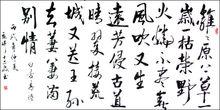 離〻原上草一
歲一枯榮野
火燒不盡春
風吹又生
遠芳侵古道
晴翠接荒
城又送王孫
去萋〻滿
別情